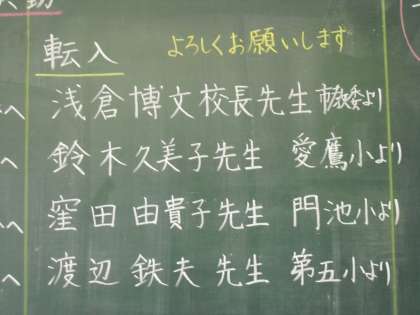 転入 よろしくお願いします
へ 浅倉博文校長先生 市教委より
へ 鈴木久美子先生 愛鷹小より
へ 窪田由貴子先生 門池小より
へ 渡辺鉄夫先生 第五小より